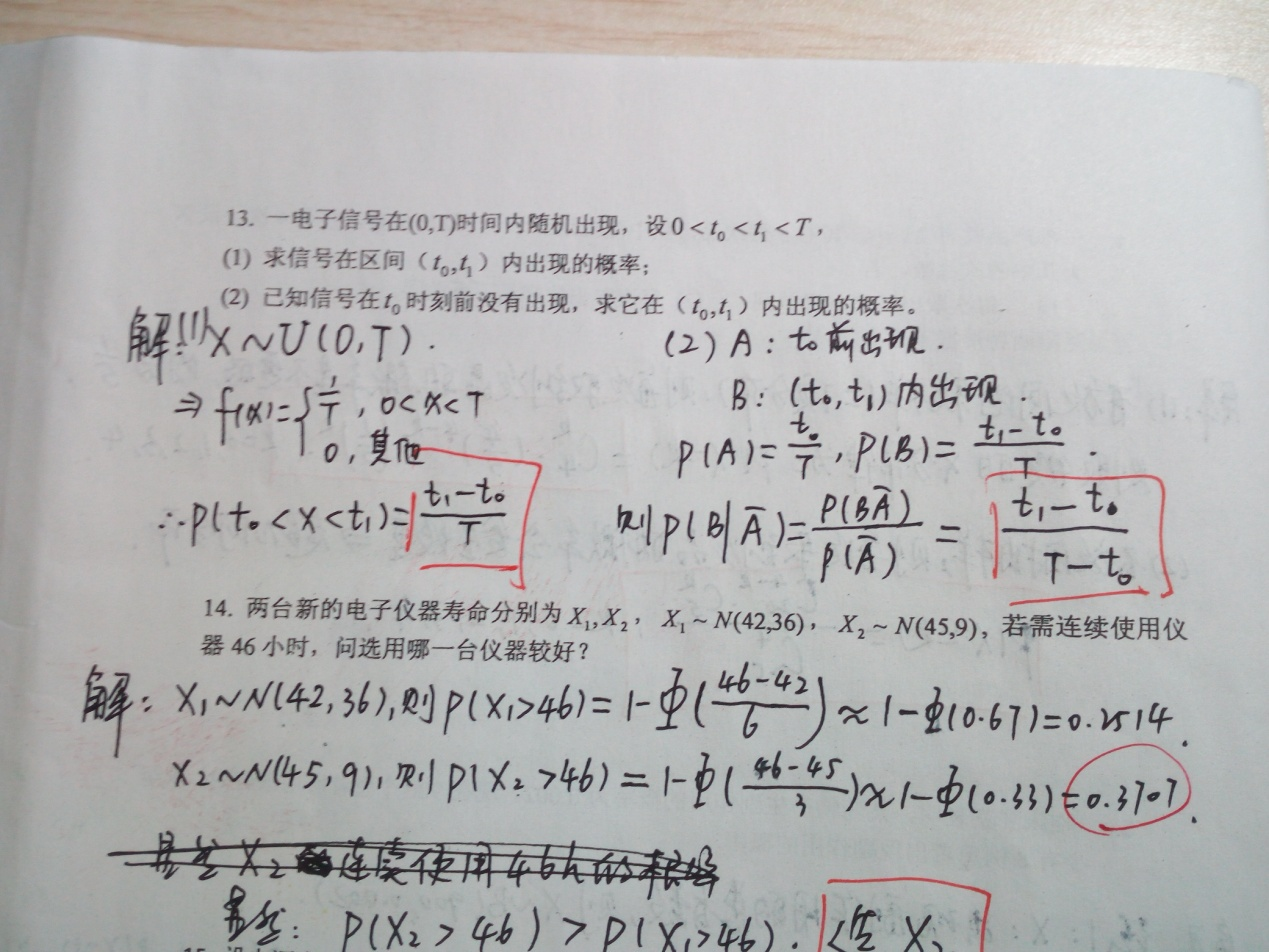 13. 一电子信号在(0,T)时间内随机出现，设0 < t₀ < t₁ < T，
(1) 求信号在区间（t₀,t₁）内出现的概率；
(2) 已知信号在t₀时刻前没有出现，求它在（t₀,t₁）内出现的概率。
解:(1) X~U(0,T).
⇒ f(x)={1/T, 0<x<T
0, 其他
∴P(t₀<X<t₁)=(t₁-t₀)/T
(2) A: t₀前出现.
B: (t₀,t₁)内出现.
P(A)=t₀/T, P(B)=(t₁-t₀)/T.
则P(B|A̅)=P(BA̅)/P(A̅)=(t₁-t₀)/(T-t₀)
14. 两台新的电子仪器寿命分别为 X₁,X₂， X₁ ~ N(42,36)， X₂ ~ N(45,9)，若需连续使用仪
器 46 小时，问选用哪一台仪器较好？
解: X₁~N(42,36),则P(X₁>46)=1-Φ((46-42)/6)≈1-Φ(0.67)=0.2514.
X₂~N(45,9),则P(X₂>46)=1-Φ((46-45)/3)≈1-Φ(0.33)=0.3707.
显然X₂连续使用46h的
显然: P(X₂>46)>P(X₁>46). 选X₂